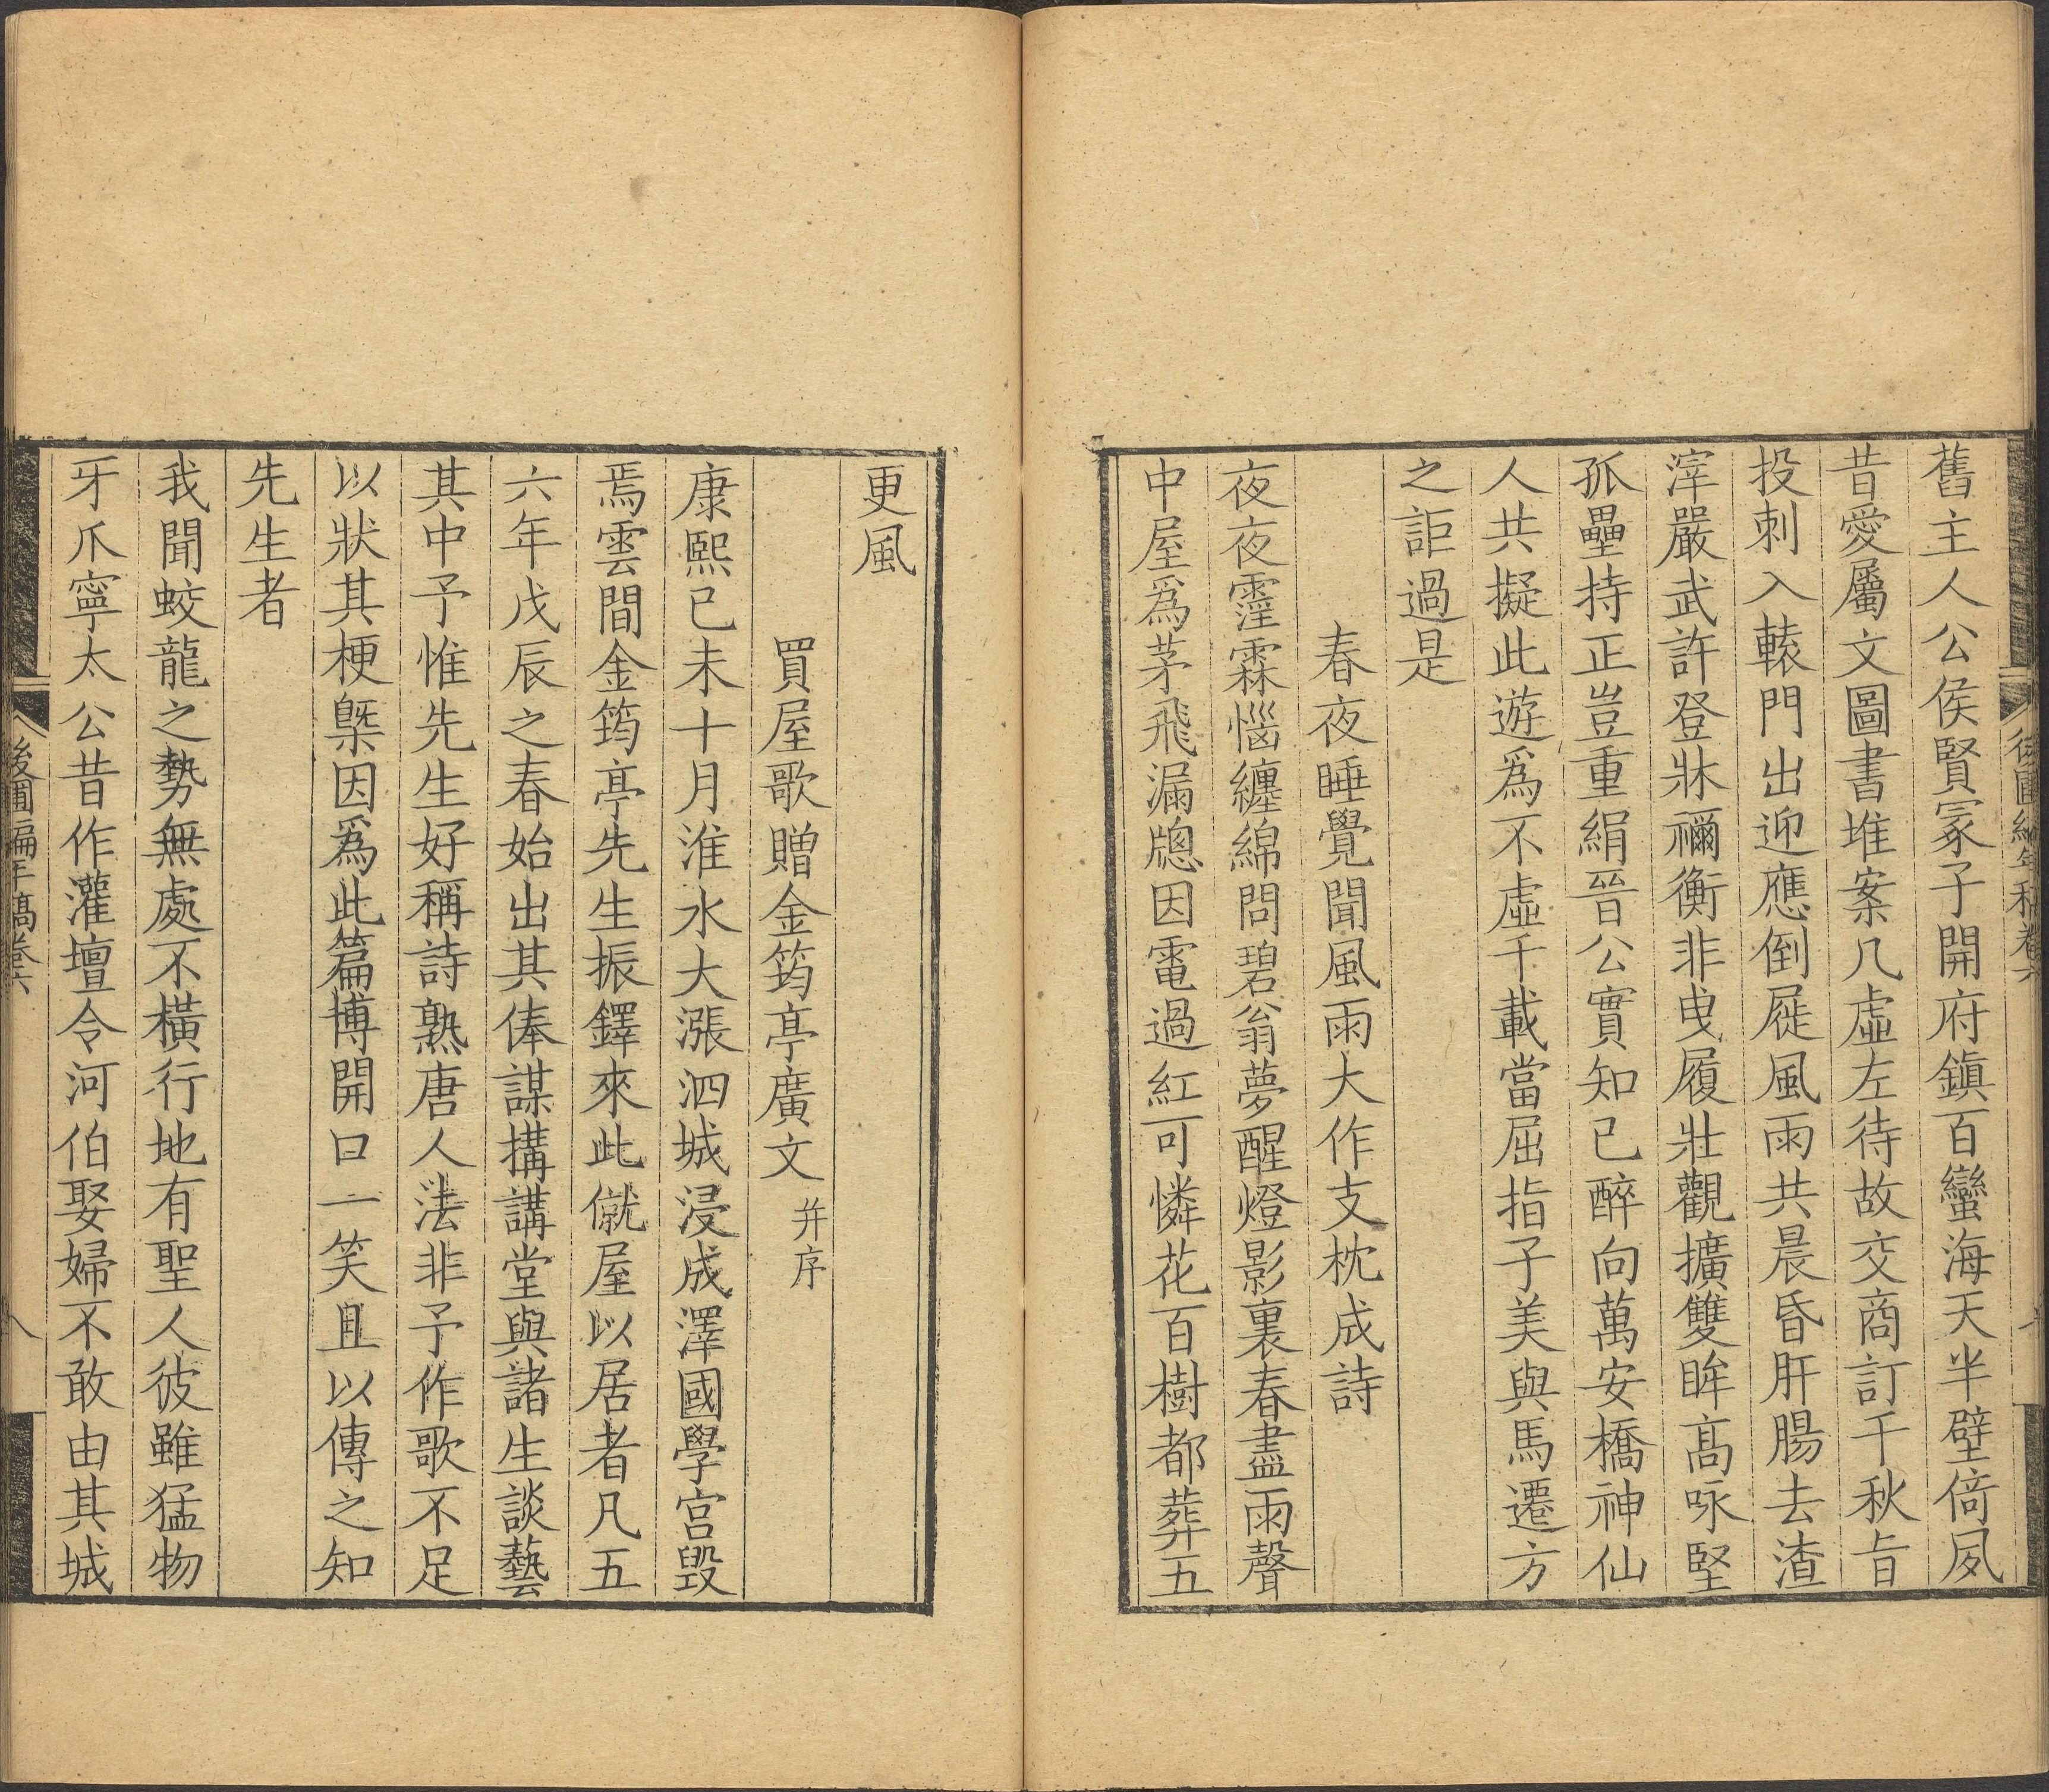 舊主人公侯賢冢子開府鎮百蠻海天半壁倚夙
昔愛屬文圖書堆案几虛左待故交商訂千秋旨
投刺入轅門出迎應倒屣風雨共晨昏肝腸去渣
滓嚴武許登牀禰衡非曳履壯觀擴雙眸高咏堅
孤壘持正豈重絹晉公實知已醉向萬安橋神仙
人共擬此遊爲不虛千載當屈指子美與馬遷方
之詎過是
春夜睡覺聞風雨大作支枕成詩
夜夜霪霖惱纏綿問碧翁夢醒燈影裏春盡雨聲
中屋爲茅飛漏牕因電過紅可憐花百樹都葬五
更風
買屋歌贈金筠亭廣文并序
康熙已未十月淮水大漲泗城浸成澤國學宮毀
焉雲間金筠亭先生振鐸來此僦屋以居者凡五
六年戊辰之春始出其俸謀搆講堂與諸生談藝
其中予惟先生好稱詩熟唐人法非予作歌不足
以狀其梗槩因爲此篇博開口一笑且以傳之知
先生者
我聞蛟龍之勢無處不橫行地有聖人彼雖猛物
牙爪寧太公昔作灌壇令河伯娶婦不敢由其城
後圃編年稿卷六
八